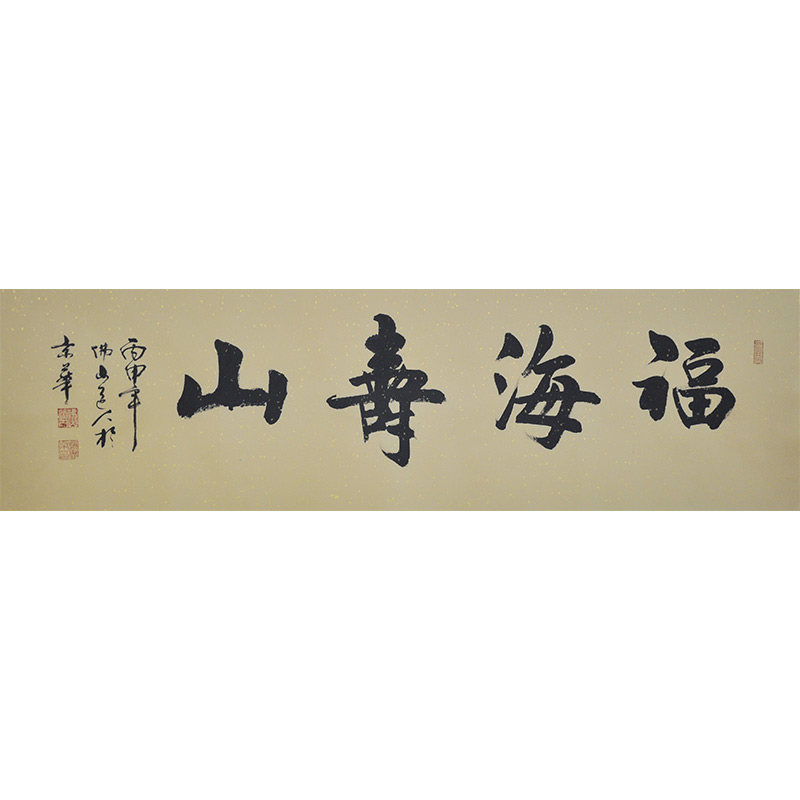 福海壽山
丙申年
佛山道人於
京華